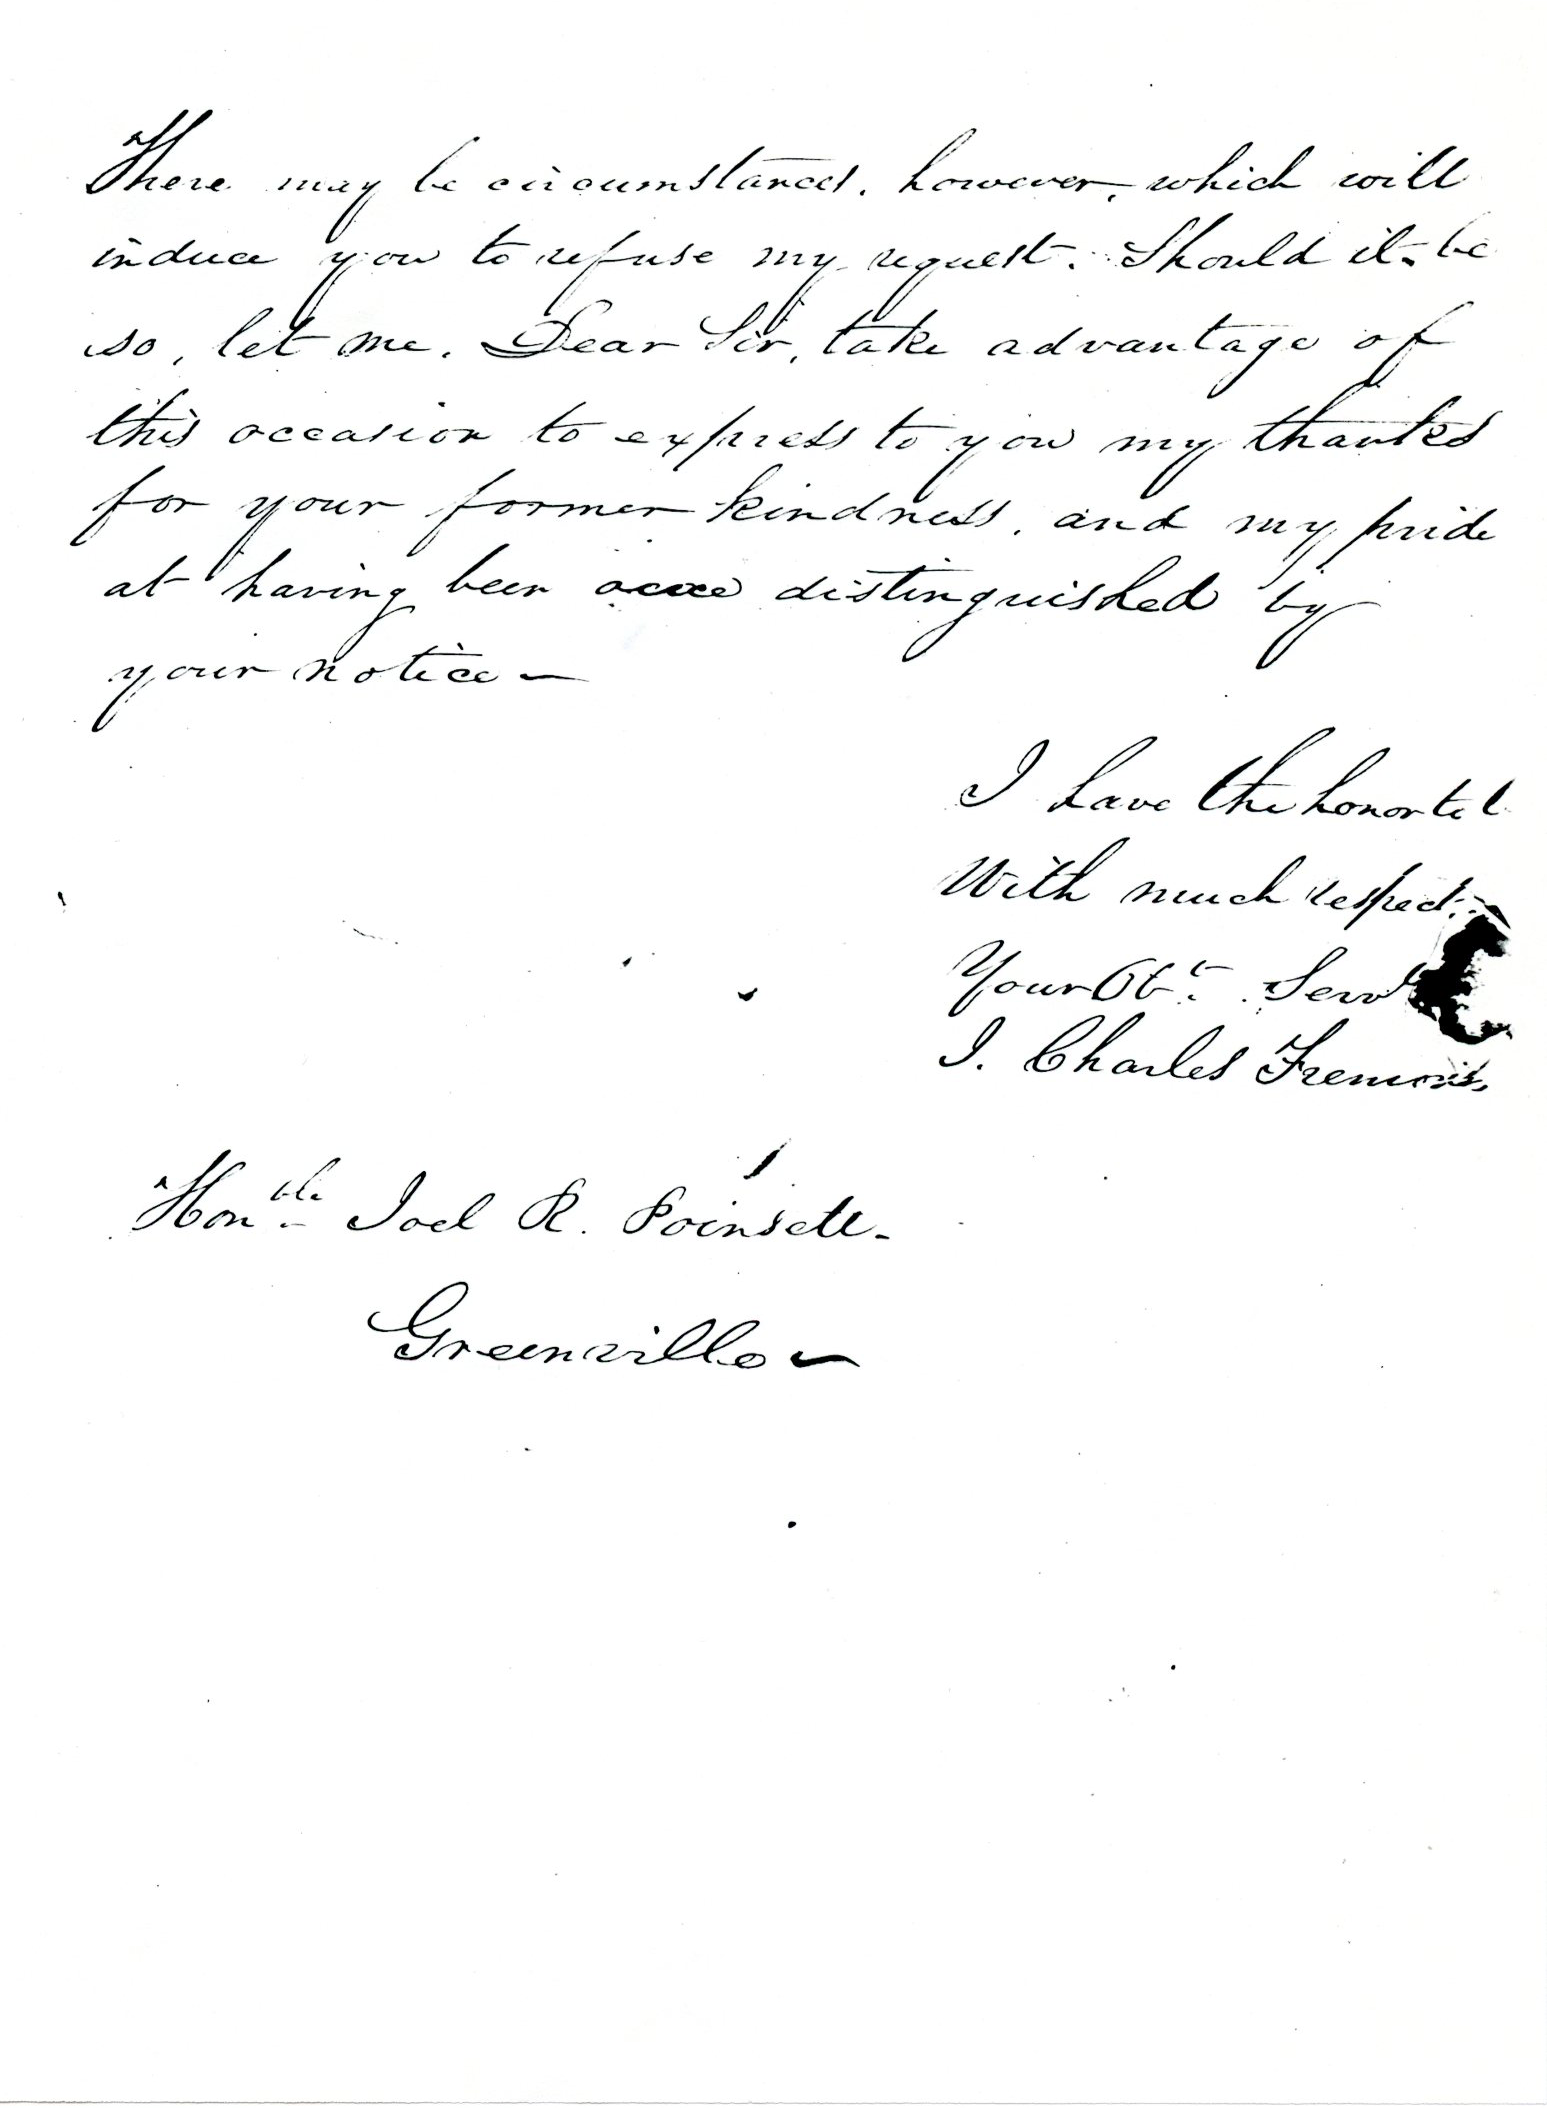 There may be circumstances, however, which will
induce you to refuse my request. Should it be
so, let me, Dear Sir, take advantage of
this occasion to express to you my thanks
for your former kindness, and my pride
at having been once distinguished by
your notice —
I have the honor to b
With much respect
Your Obt. Servt
J. Charles Fremont
Honble Joel R. Poinsett.
Greenville —